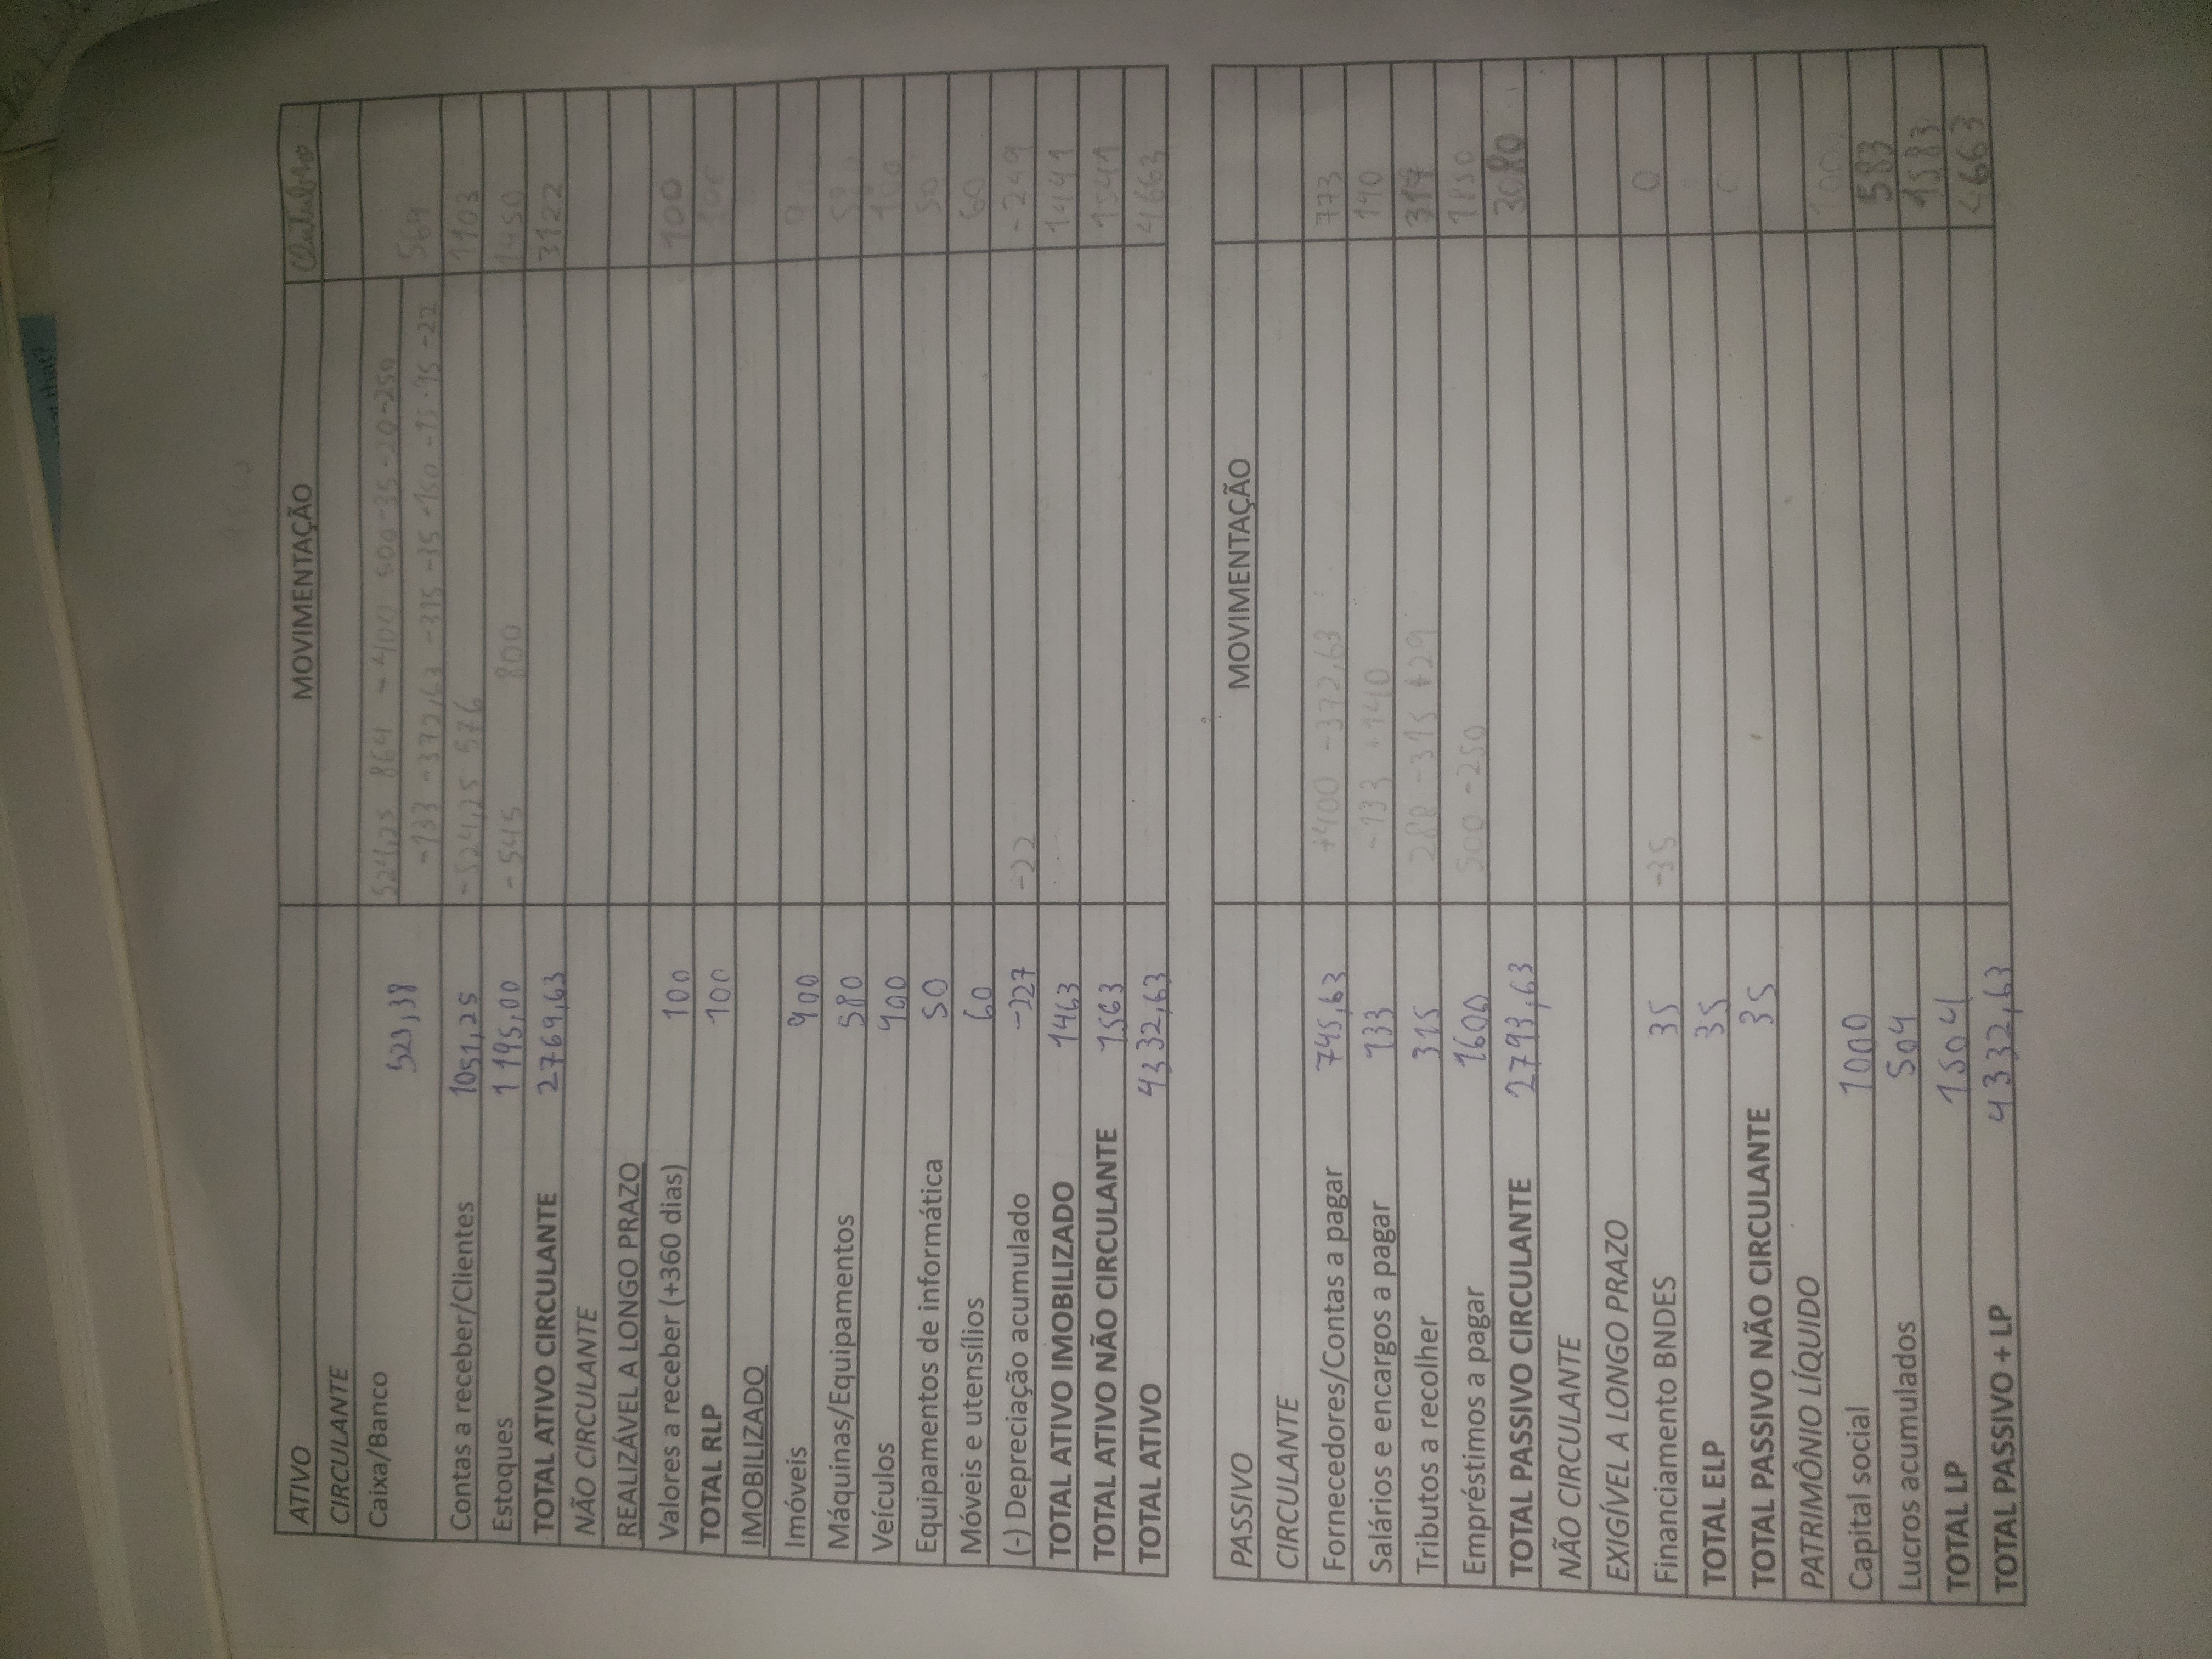 at that?
ATIVO MOVIMENTAÇÃO Outubro
CIRCULANTE
Caixa/Banco 523,38 524,25 864 -400 500 -35 -20 -250
-133 -372,63 -315 -35 -150 -15 -95 -22 569
Contas a receber/Clientes 1051,25 -524,25 576 1103
Estoques 1195,00 -545 800 1450
TOTAL ATIVO CIRCULANTE 2769,63 3122
NÃO CIRCULANTE
REALIZÁVEL A LONGO PRAZO
Valores a receber (+360 dias) 100 100
TOTAL RLP 100 100
IMOBILIZADO
Imóveis 900 900
Máquinas/Equipamentos 580 580
Veículos 100 100
Equipamentos de informática 50 50
Móveis e utensílios 60 60
(-) Depreciação acumulado -227 -22 -249
TOTAL ATIVO IMOBILIZADO 1463 1441
TOTAL ATIVO NÃO CIRCULANTE 1563 1541
TOTAL ATIVO 4332,63 4663
PASSIVO MOVIMENTAÇÃO
CIRCULANTE
Fornecedores/Contas a pagar 745,63 +400 -372,63 773
Salários e encargos a pagar 133 -133 +140 140
Tributos a recolher 315 288 -315 +29 317
Empréstimos a pagar 1600 500 -250 1850
TOTAL PASSIVO CIRCULANTE 2793,63 3080
NÃO CIRCULANTE
EXIGÍVEL A LONGO PRAZO
Financiamento BNDES 35 -35 0
TOTAL ELP 35
TOTAL PASSIVO NÃO CIRCULANTE 35 0
PATRIMÔNIO LÍQUIDO
Capital social 1000
Lucros acumulados 504 583
TOTAL LP 1504 1583
TOTAL PASSIVO + LP 4332,63 4663